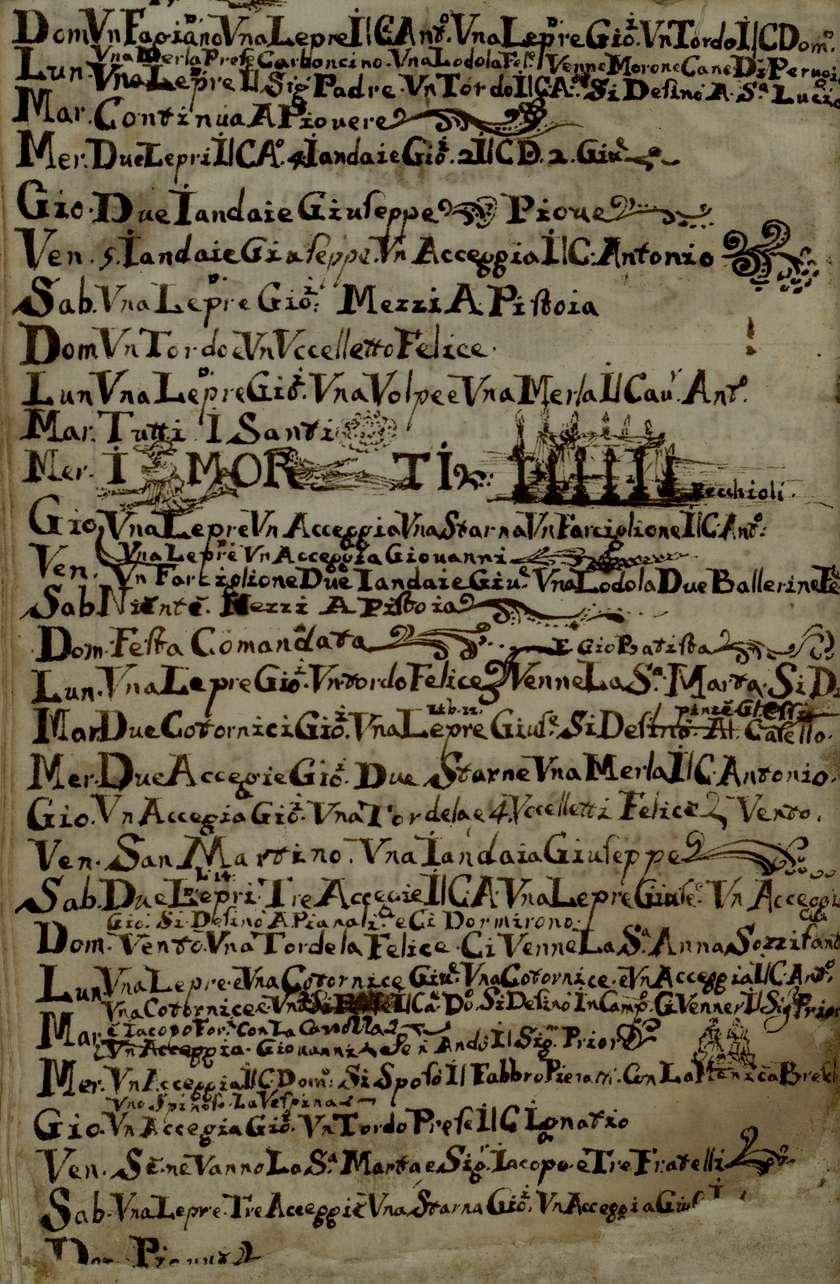 Dom Vn Fagiano Vna Lepre Il C Ant.º Vna Lepre Gio. Vn Tordo Il C Dom.º
Vna Merla Prese Carboncino. Vna Lodola Fel.e Venne Morone Cane Di Perugi
Lun. Vna Lepre Il Sig. Padre Vn Tordo Il C A.º Si Desinò A S.a Lucia
Mar. Continua A Piouere
Mer. Due Lepri Il C A.º 4 Iandaie Gio. 2 Il C D. 2. Giu
Gio. Due Iandaie Giuseppe Pioue
Ven. 5. Iandaie Giuseppe. Vn Acceggia Il C: Antonio
Sab. Vna Lepre Gio: Mezzi A Pistoia
Dom Vn Tordo e Vn Vccelletto Felice.
Lun Vna Lepre Gio. Vna Volpe e Vna Merla Il Cau. Ant.º
Mar. Tutti I Santi
Mer. I MORTI Vecchioli.
Gio Vna Lepre Vn Acceggia Vna Starna Vn Farciglione Il C Ant.º
Vna Lepre Vn Acceggia Giouanni
Ven. Vn Farciglione Due Iandaie Giu.e Vna Lodola Due Ballerine Fe
Sab Niente. Mezzi A Pistoia
Dom. Festa Comandata E Gio Batista
Lun. Vna Lepre Gio. Vn tordo Felice Venne La S.a Marta. Si D
Mar Due Cotornici Gio. Vna Lepre Gius.e Si Desinò Al Casello.
Mer. Due Accegie Gio. Due Starne Vna Merla Il C Antonio.
Gio. Vn Accegia Gio. Vna Tordela e 4. Vccelletti Felice Vento.
Ven. San Martino. Vna Iandaia Giuseppe
Sab. Due Lepri. Tre Accegie Il C A Vna Lepre Gius.e Vn Acceggi
Gio. Si Desinò A Pianali e Ci Dormirono.
Dom. Vento. Vna Tordela Felice. Ci Venne La S.a Anna Sozzifant
Lun Vna Lepre e Vna Cotornice Giu.e Vna Cotornice e Vn Acceggia Il C Ant.º
Vna Cotornice e Il Ca. Do. Si Desinò In Camp. G Venner Il Sig Prior
Mar. e Iacopo For. Con La
Vn Acceggia. Giouanni e Se n Andò Il Sig. Prior
Mer. Vn Acceggia Il C Dom.º Si Sposò Il Fabbro Pieratti. Con La Menica Bresc
Vno Spinoso La Vespina
Gio. Vn Accegia Gio. Vn Tordo Prese Il C Ignatio
Ven. Se ne Vanno La S.a Marta e Sig. Iacopo e Tre Fratelli
Sab. Vna Lepre. Tre Acceggie Vna Starna Gio. Vn Acceggia Gius
Dom Pioue